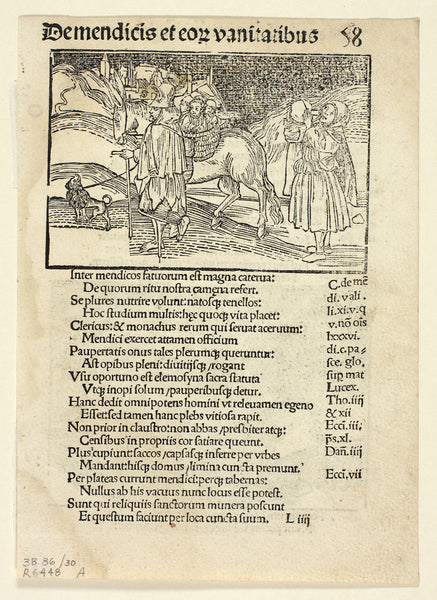 De mendicis et eoꝝ vanitatibus 58
Inter mendicos fatuorum est magna caterua:
De quorum ritu nostra camęna refert.
Se plures nutrire volunt: natosqꝫ tenellos:
Hoc studium multis: hęc quoqꝫ vita placet:
Clericus: & monachus rerum qui seruat aceruum:
Mendici exercet attamen officium
Paupertatis onus tales plerumqꝫ queruntur:
Ast opibus pleni: diuitijsqꝫ / rogant
Viu oportuno est elemosyna sacra statuta
Vtqꝫ inopi solum / pauperibusqꝫ detur.
Hanc dedit omnipotens homini vt releuamen egeno
Esset: sed tamen hanc plebs vitiosa rapit.
Non prior in claustro: non abbas / presbiter atqꝫ:
Censibus in propriis cor satiare queunt.
Plus cupiunt: saccos / capsasqꝫ inferre per vrbes
Mandant: hisqꝫ domus / limina cuncta premunt.
Per plateas currunt mendici: perqꝫ tabernas:
Nullus ab his vacuus nunc locus esse potest.
Sunt qui reliquiis sanctorum munera poscunt
Et questum faciunt per loca cuncta suum. L iiij
C. de mē
di. vali.
li. xi. v. q
v. nō oīs
lxxxvi.
di. c. pa=
sce. glo.
sup mat
Lucex.
Tho. iiij
& xii
Ecci. iii.
p̄s. xl.
Dañ. iiij
Ecci. vii
38.86/30
R6448 A